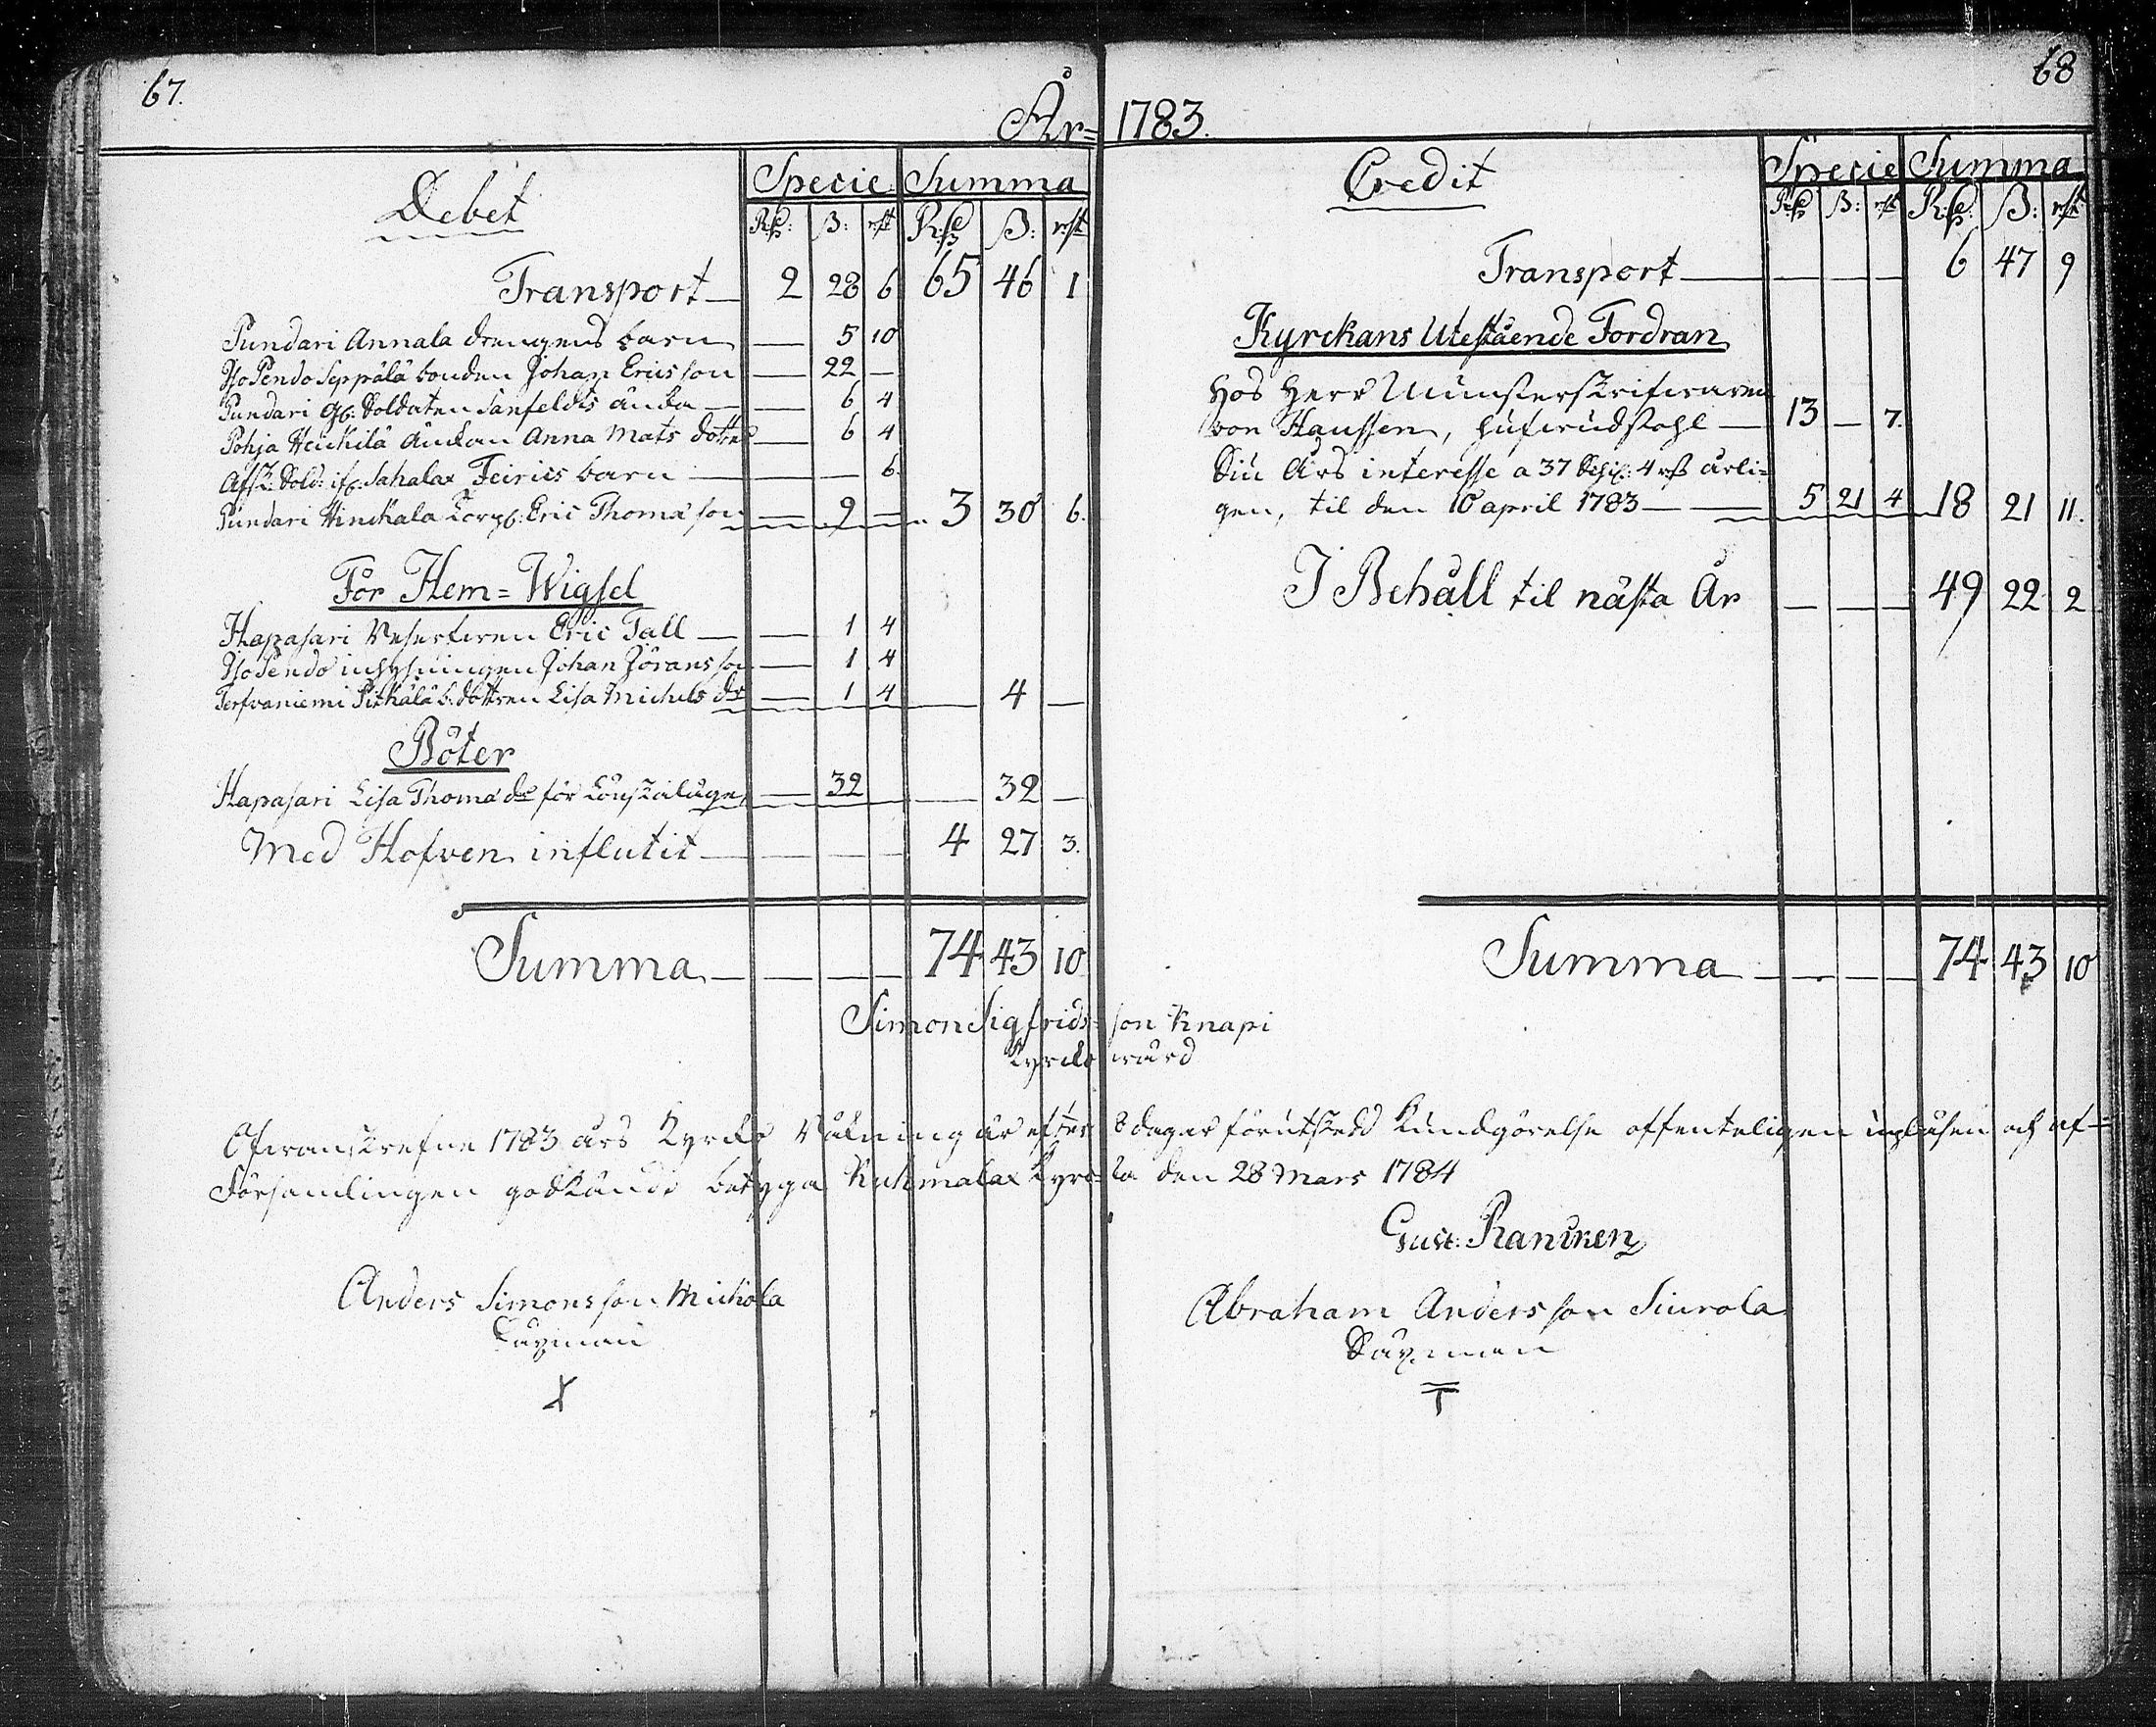 67.
År=
Debet
Specie Summa
R:sp: ß: rst R:sp ß: rst
Transport — 2 28 6 65 46 1
Pundari Annala drengens barn — 5 10
Seppälä bonden Johan Ericsson — 22 —
Pundari Soldaten Sanfeldts änka — 6 4
Pohja Heickilä änkan Anna Mats dotter — 6 4
Sahalax barn — — 6.
Pundari Hinckala Eric Thomæson — 9 — 3 30 6.
För Hem=Wigsel
Hapasari Eric Tall — — 1 4
inhysingen Johan Jöransson — 1 4
Terfvaniemi Pitkälä b. dottren Lisa Michels dr — 1 4 — 4 —
Böter
Hapasari Lisa Thomæ dr för — 32 — 32 —
Med Hofven influtit — — — 4 27 3.
Summa — — — 74 43 10
68
1783.
Credit
Specie Summa
R:sp ß: rst R:sp: ß: rst
Transport — — — — 6 47 9
Kyrckans Utestående Fordran
Hos Herr Munsterskrifvaren
von Haussen, — 13 — 7.
Års interesse a 37 4 årli=
gen, til den 10 april 1783 — — 5 21 4 18 21 11.
I Behåll til nästa År — — — 49 22 2
Summa — — — 74 43 10
Simon Sigfrids=son Knapi
Kyrckovärd
Ofvanskrefne 1783 års Kyrcko Räkning är efter 8 dagar förutskedd Kundgörelse offenteligen upläsen och af=
Församlingen godkände betyga Kuhmalax Kyrc=ka den 28 Mars 1784
Gust: Rancken
Anders Simonsson Michola
X
Abraham Andersson Siurola
Säxman